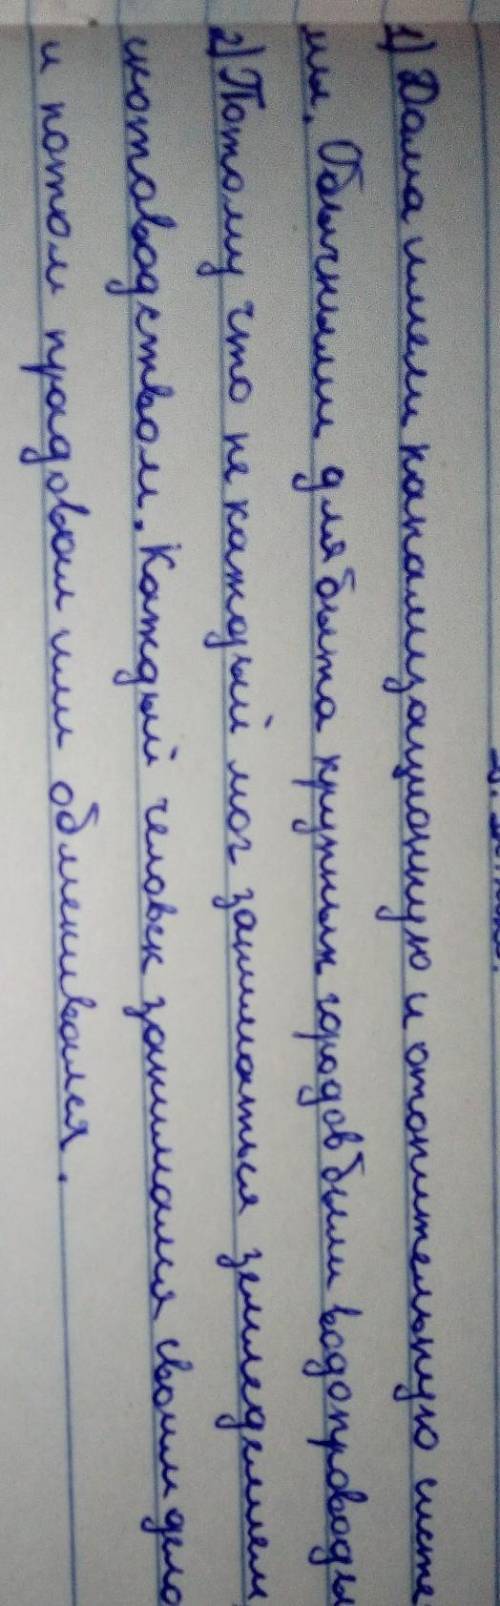 1) Дома имели канализационную и отопительную систе
мы. Обычными для быта крупных городов были водопроводы
2) Потому что не каждый мог заниматься земледелием
скотоводством. Каждый человек занимался своим дело
и потом прадовал или обменивался.